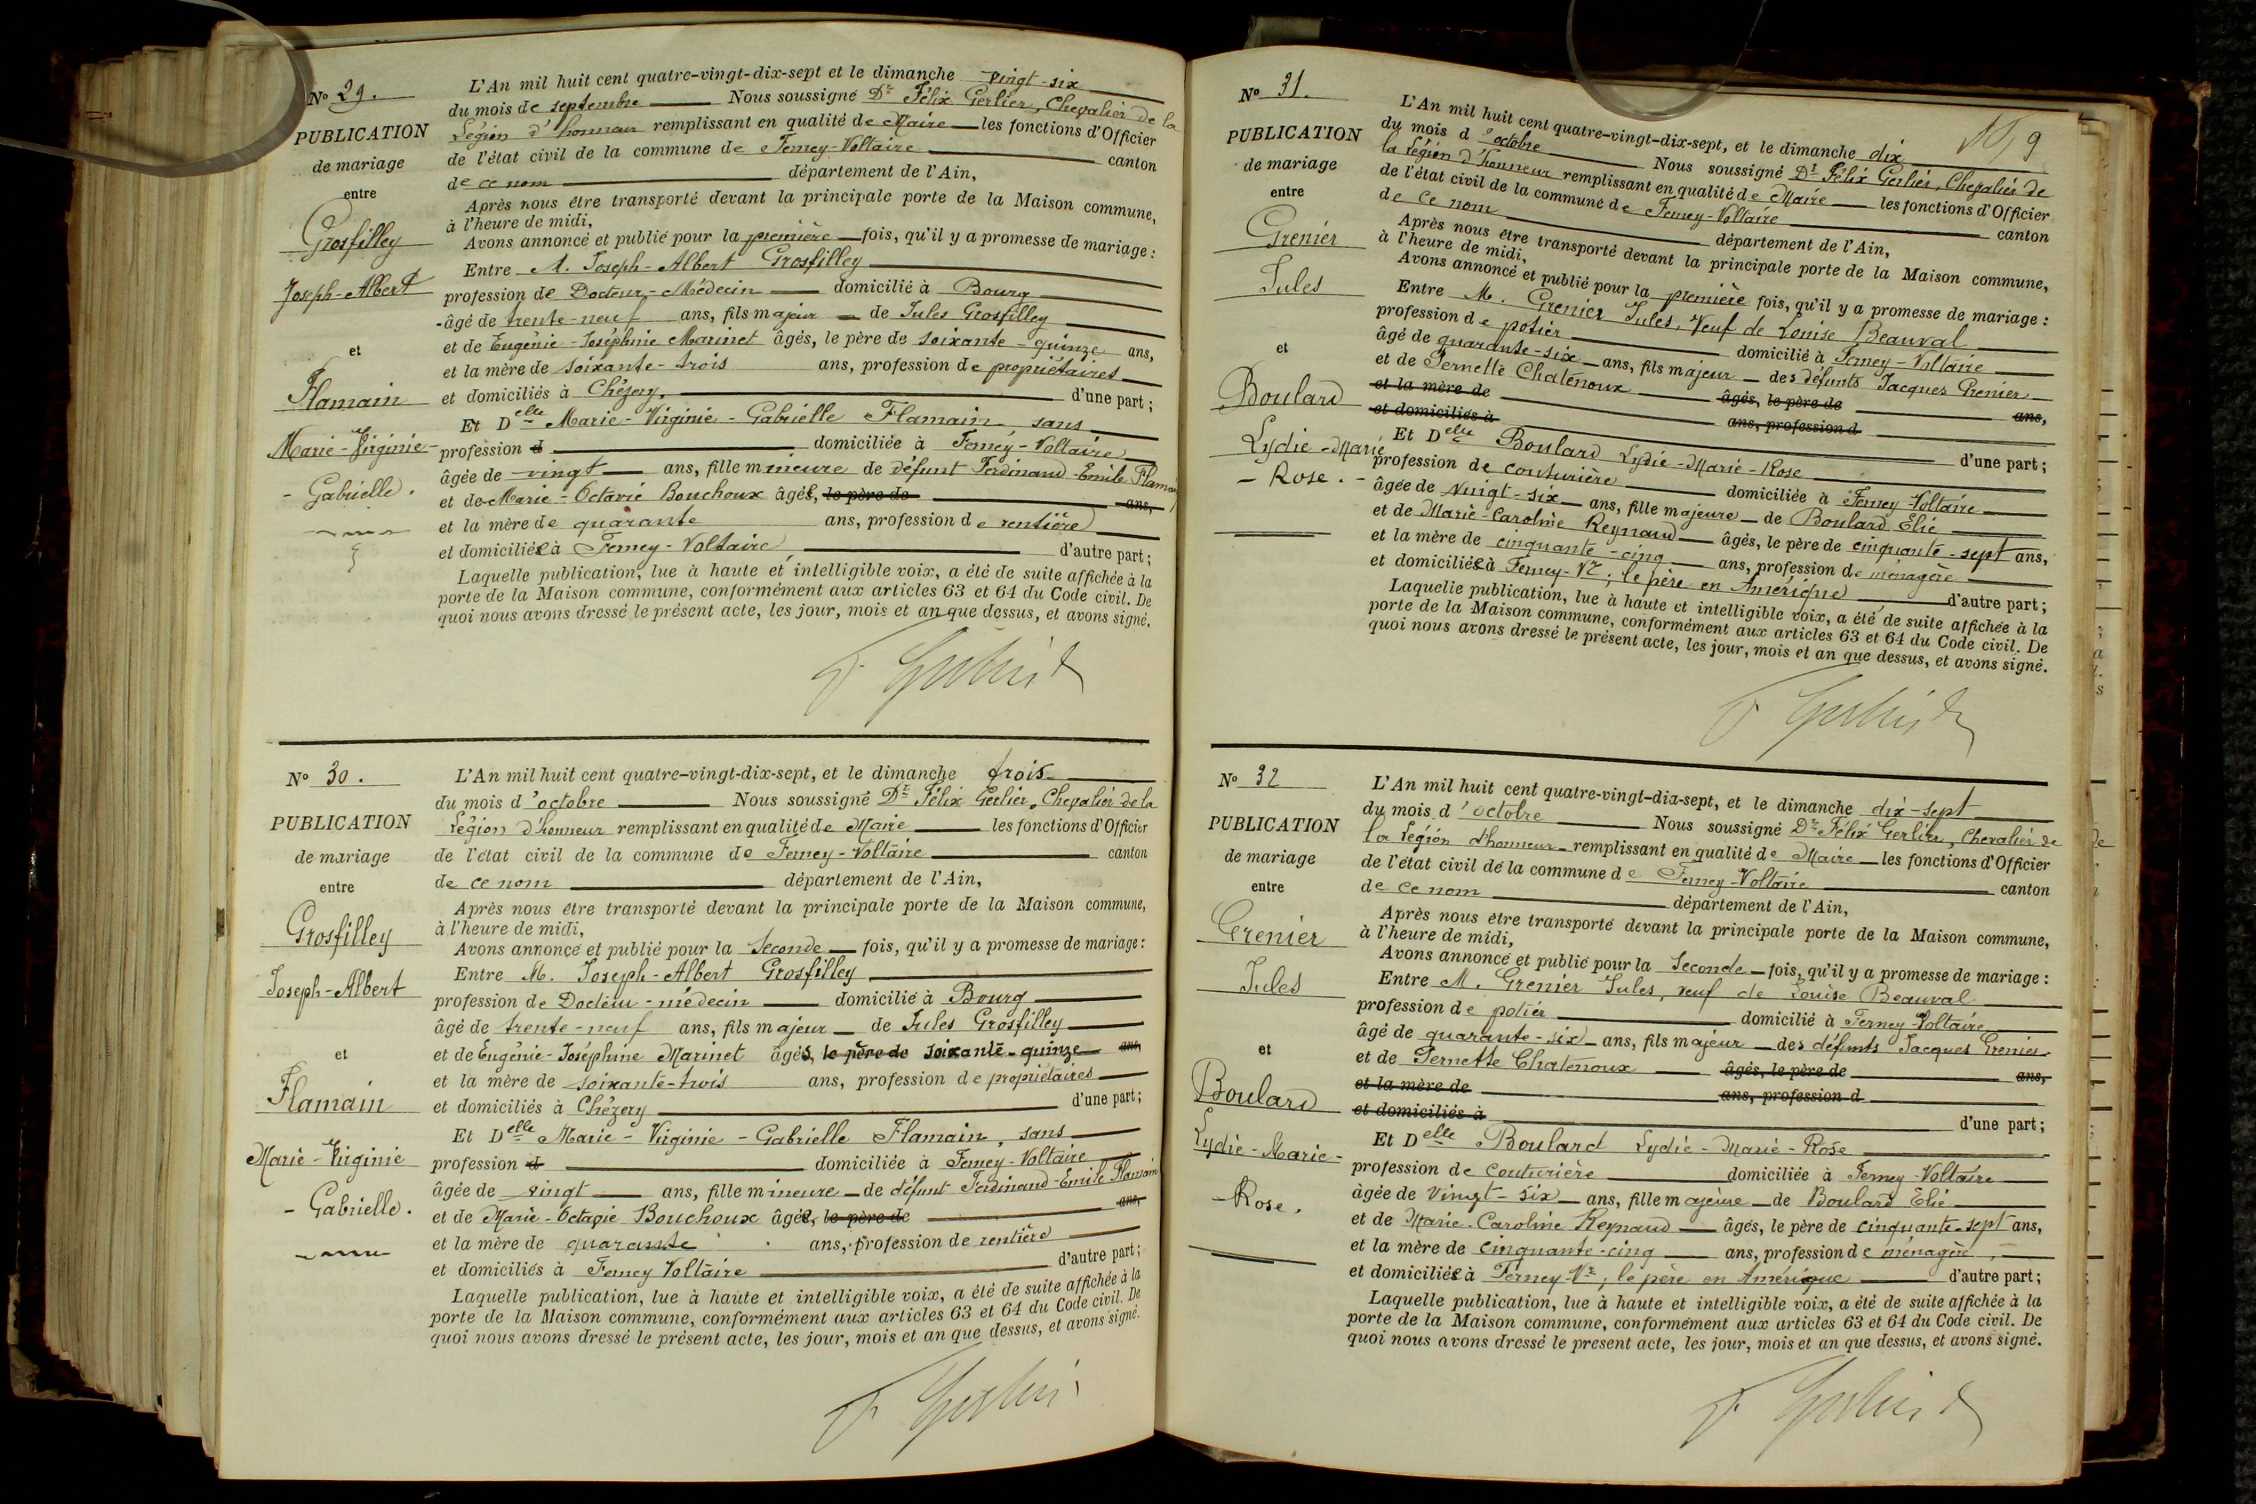 N° 29.
PUBLICATION
de mariage
entre
Grosfilley
Joseph-Albert
et
Flamain
Marie-Virginie-
- Gabrielle.
L'An mil huit cent quatre-vingt-dix-sept et le dimanche vingt-six
du mois de septembre Nous soussigné Dr Félix Gerlier, Chevalier de la
Légion d'honneur remplissant en qualité de Maire les fonctions d'Officier
de l'état civil de la commune de Ferney-Voltaire canton
de ce nom département de l'Ain,
Après nous être transporté devant la principale porte de la Maison commune,
à l'heure de midi,
Avons annoncé et publié pour la première fois, qu'il y a promesse de mariage :
Entre M. Joseph-Albert Grosfilley
profession de Docteur-Médecin domicilié à Bourg
âgé de trente-neuf ans, fils majeur de Jules Grosfilley
et de Eugénie-Joséphine Marinet âgés, le père de soixante-quinze ans,
et la mère de soixante-trois ans, profession de propriétaires
et domiciliés à Chézery, d'une part ;
Et Delle Marie-Virginie-Gabrielle Flamain sans
profession d domiciliée à Ferney-Voltaire
âgée de vingt ans, fille mineure de défunt Ferdinand-Emile Flamain
et de Marie-Octavie Bouchoux âgée, le père de ans,
et la mère de quarante ans, profession de rentière
et domiciliée à Ferney-Voltaire d'autre part ;
Laquelle publication, lue à haute et intelligible voix, a été de suite affichée à la
porte de la Maison commune, conformément aux articles 63 et 64 du Code civil. De
quoi nous avons dressé le présent acte, les jour, mois et an que dessus, et avons signé.
F. Gerlier
N° 30.
PUBLICATION
de mariage
entre
Grosfilley
Joseph-Albert
et
Flamain
Marie-Virginie
- Gabrielle.
L'An mil huit cent quatre-vingt-dix-sept, et le dimanche trois
du mois d'octobre Nous soussigné Dr Félix Gerlier, Chevalier de la
Légion d'honneur remplissant en qualité de Maire les fonctions d'Officier
de l'état civil de la commune de Ferney-Voltaire canton
de ce nom département de l'Ain,
Après nous être transporté devant la principale porte de la Maison commune,
à l'heure de midi,
Avons annoncé et publié pour la seconde fois, qu'il y a promesse de mariage :
Entre M. Joseph-Albert Grosfilley
profession de Docteur-médecin domicilié à Bourg
âgé de trente-neuf ans, fils majeur de Jules Grosfilley
et de Eugénie-Joséphine Marinet âgés, le père de soixante-quinze ans,
et la mère de soixante-trois ans, profession de propriétaires
et domiciliés à Chézery d'une part ;
Et Delle Marie-Virginie-Gabrielle Flamain, sans
profession d domiciliée à Ferney-Voltaire
âgée de vingt ans, fille mineure de défunt Ferdinand-Emile Flamain
et de Marie-Octavie Bouchoux âgée, le père de ans,
et la mère de quarante ans, profession de rentière
et domiciliés à Ferney Voltaire d'autre part ;
Laquelle publication, lue à haute et intelligible voix, a été de suite affichée à la
porte de la Maison commune, conformément aux articles 63 et 64 du Code civil. De
quoi nous avons dressé le présent acte, les jour, mois et an que dessus, et avons signé.
F. Gerlier
N° 31.
PUBLICATION
de mariage
entre
Grenier
Jules
et
Boulard
Lydie-Marie
- Rose.
L'An mil huit cent quatre-vingt-dix-sept, et le dimanche dix
du mois d'octobre Nous soussigné Dr Félix Gerlier, Chevalier de
la Légion d'honneur remplissant en qualité de Maire les fonctions d'Officier
de l'état civil de la commune de Ferney-Voltaire canton
de ce nom département de l'Ain,
Après nous être transporté devant la principale porte de la Maison commune,
à l'heure de midi,
Avons annoncé et publié pour la première fois, qu'il y a promesse de mariage :
Entre M. Grenier Jules, Veuf de Louise Beauval
profession de potier domicilié à Ferney-Voltaire
âgé de quarante-six ans, fils majeur des défunts Jacques Grenier
et de Pernette Chatenoux âgés, le père de ans,
et la mère de ans, profession d
et domiciliés à d'une part ;
Et Delle Boulard Lydie-Marie-Rose
profession de couturière domiciliée à Ferney-Voltaire
âgée de vingt-six ans, fille majeure de Boulard Elie
et de Marie-Caroline Reynaud âgés, le père de cinquante-sept ans,
et la mère de cinquante-cinq ans, profession de ménagère
et domiciliée à Ferney-Vre ; le père en Amérique d'autre part ;
Laquelle publication, lue à haute et intelligible voix, a été de suite affichée à la
porte de la Maison commune, conformément aux articles 63 et 64 du Code civil. De
quoi nous avons dressé le présent acte, les jour, mois et an que dessus, et avons signé.
F. Gerlier
N° 32
PUBLICATION
de mariage
entre
Grenier
Jules
et
Boulard
Lydie-Marie-
- Rose.
L'An mil huit cent quatre-vingt-dix-sept, et le dimanche dix-sept
du mois d'octobre Nous soussigné Dr Félix Gerlier, Chevalier de
la Légion d'honneur remplissant en qualité de Maire les fonctions d'Officier
de l'état civil de la commune de Ferney-Voltaire canton
de ce nom département de l'Ain,
Après nous être transporté devant la principale porte de la Maison commune,
à l'heure de midi,
Avons annoncé et publié pour la seconde fois, qu'il y a promesse de mariage :
Entre M. Grenier Jules, veuf de Louise Beauval
profession de potier domicilié à Ferney-Voltaire
âgé de quarante-six ans, fils majeur des défunts Jacques Grenier
et de Pernette Chatenoux âgés, le père de ans,
et la mère de ans, profession d
et domiciliés à d'une part ;
Et Delle Boulard Lydie-Marie-Rose
profession de couturière domiciliée à Ferney-Voltaire
âgée de vingt-six ans, fille majeure de Boulard Elie
et de Marie-Caroline Reynaud âgés, le père de cinquante-sept ans,
et la mère de cinquante-cinq ans, profession de ménagère,
et domiciliée à Ferney-Vre ; le père en Amérique d'autre part ;
Laquelle publication, lue à haute et intelligible voix, a été de suite affichée à la
porte de la Maison commune, conformément aux articles 63 et 64 du Code civil. De
quoi nous avons dressé le présent acte, les jour, mois et an que dessus, et avons signé.
F. Gerlier